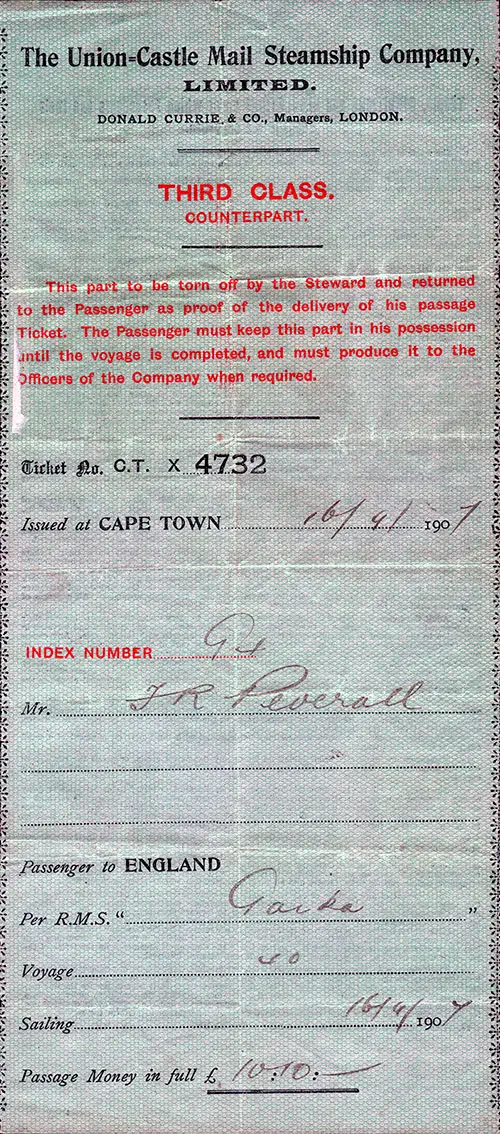 The Union-Castle Mail Steamship Company,
LIMITED.
DONALD CURRIE & CO., Managers, LONDON.
THIRD CLASS.
COUNTERPART.
This part to be torn off by the Steward and returned
to the Passenger as proof of the delivery of his passage
Ticket. The Passenger must keep this part in his possession
until the voyage is completed, and must produce it to the
Officers of the Company when required.
Ticket No. C.T. X 4732
Issued at CAPE TOWN 16/9/1907
INDEX NUMBER
Mr. J R Peverall
Passenger to ENGLAND
Per R.M.S. "Gaika"
Voyage 40
Sailing 16/9/1907
Passage Money in full £ 10:10:—